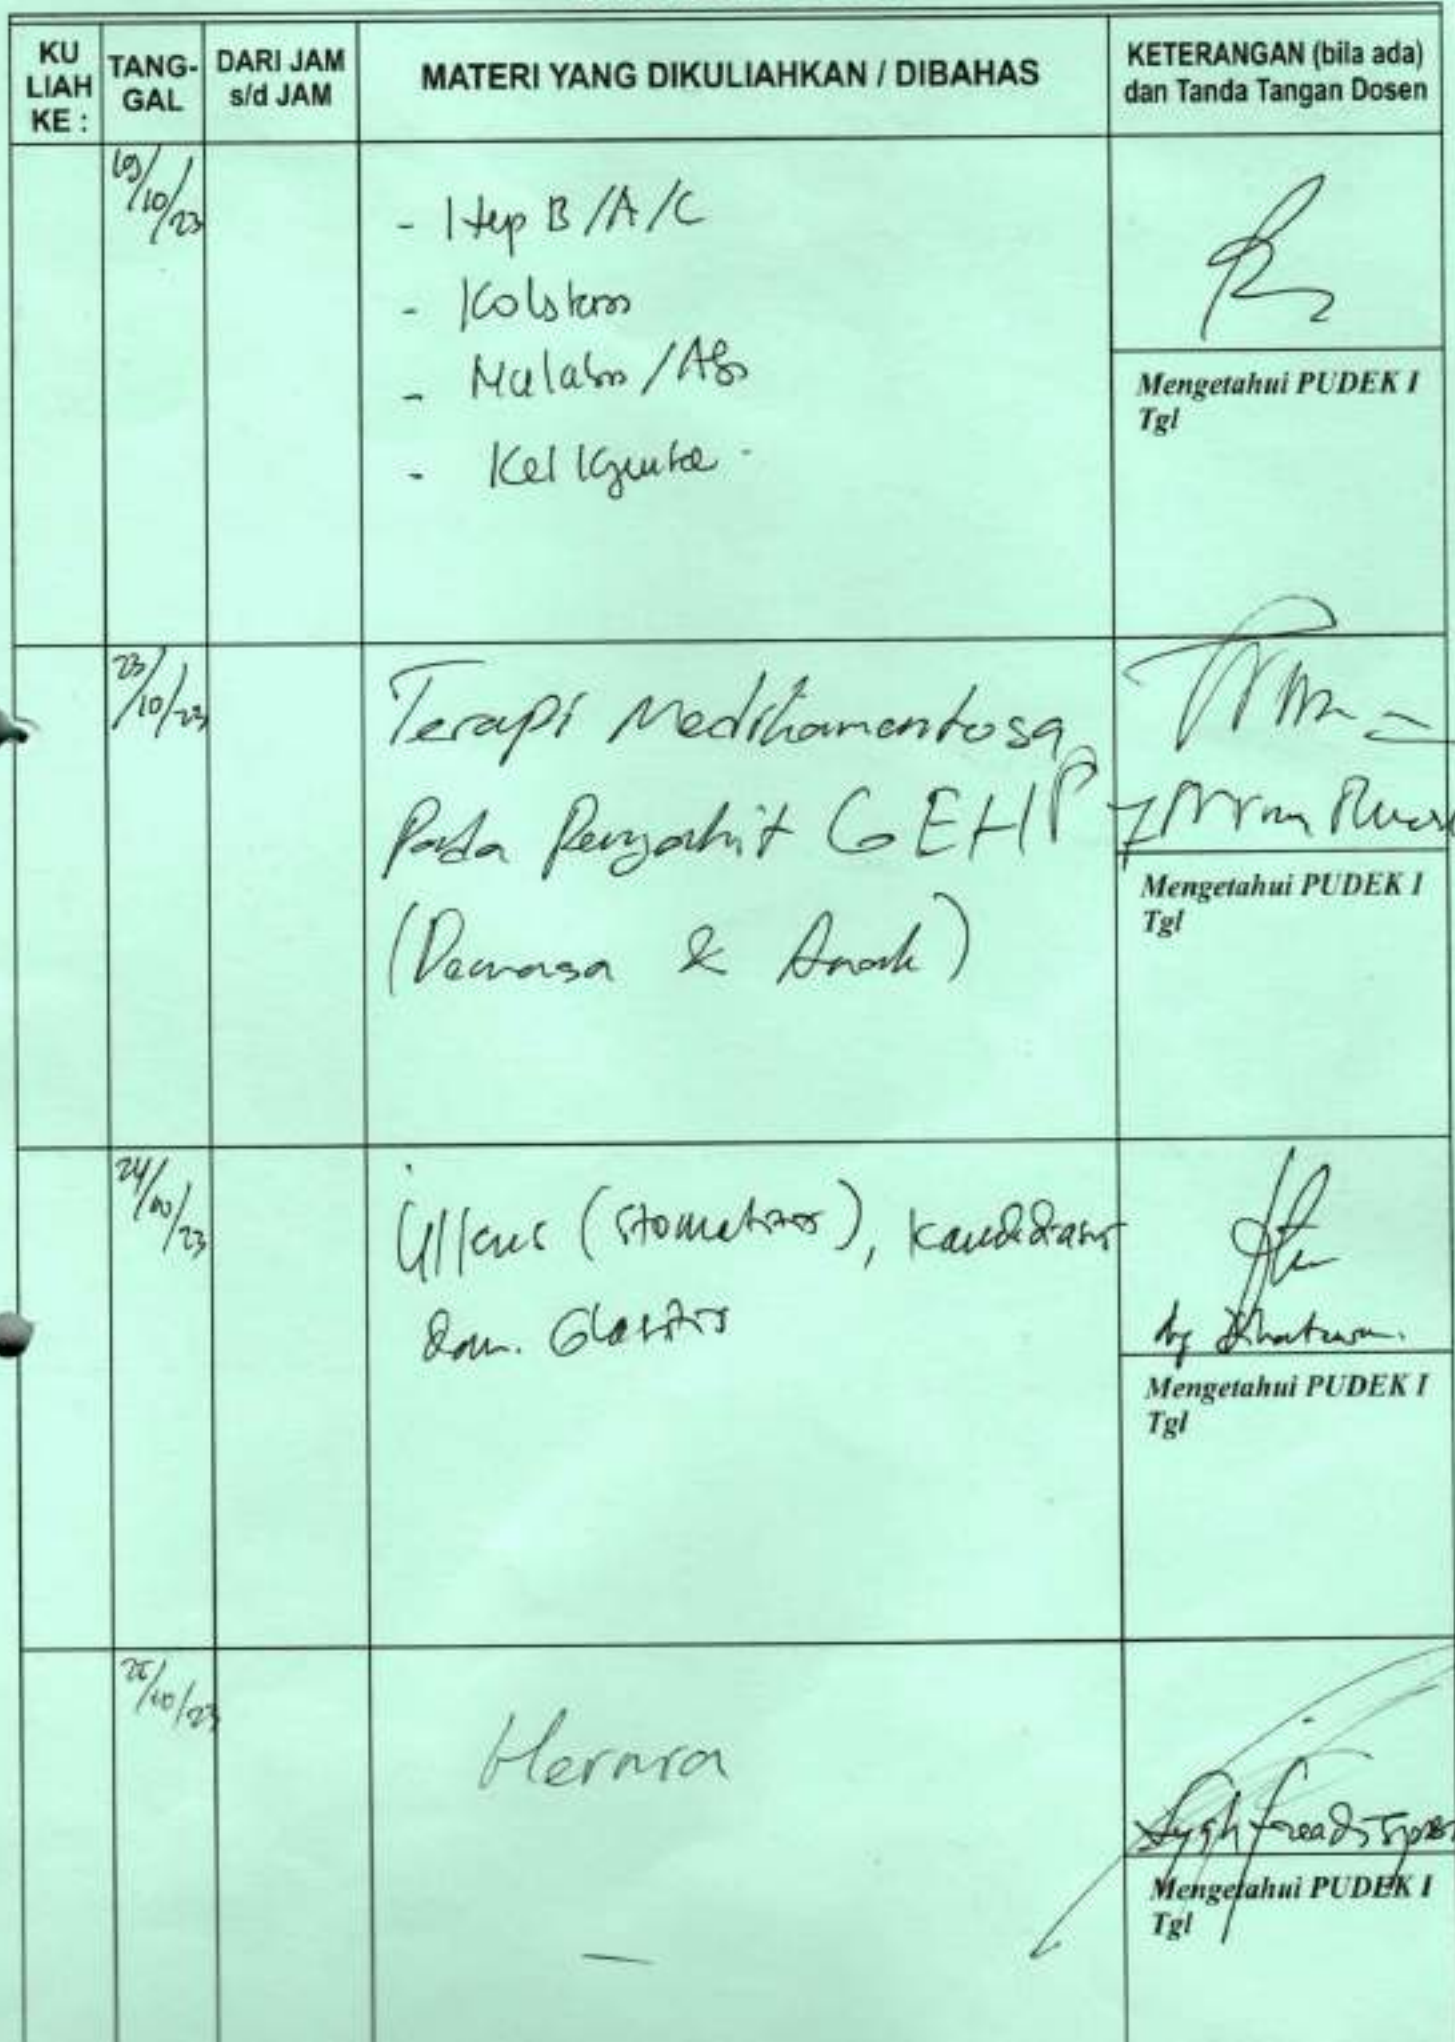 KU LIAH KE :
TANG-GAL
DARI JAM s/d JAM
MATERI YANG DIKULIAHKAN / DIBAHAS
KETERANGAN (bila ada) dan Tanda Tangan Dosen
/10/23
- Hep B/A/C
-
-
- Kel
Mengetahui PUDEK I
Tgl
23/10/23
Terapi Medikamentosa
Pada Penyakit GEHP
(Dewasa & Anak)
Mengetahui PUDEK I
Tgl
24/10/23
Ulkus (stomatitis), kandidiasis
dan. Glositis
Mengetahui PUDEK I
Tgl
/10/23
Hernia
Mengetahui PUDEK I
Tgl